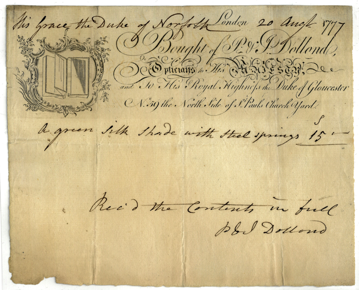 His Grace the Duke of Norfolk London 20 Augt 1797
Bought of P. & J. Dollond,
Opticians to His MAJESTY,
and To His Royal Highness the Duke of Gloucester
No. 59 the North Side of St. Pauls Church Yard.
A green silk shade with steel springs 15
S
Rec'd the Contents in full
P & J Dollond